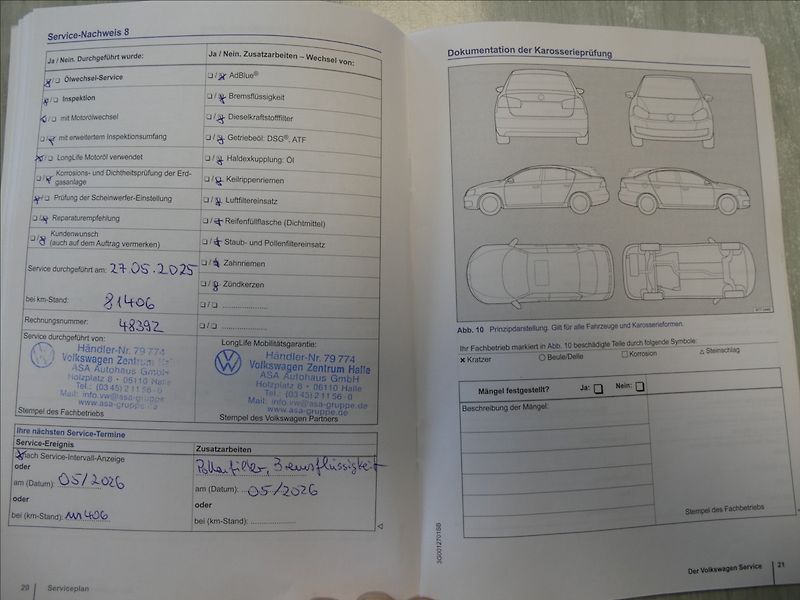 Service-Nachweis 8
Ja / Nein. Durchgeführt wurde:
Ölwechsel-Service
Inspektion
mit Motorölwechsel
mit erweitertem Inspektionsumfang
LongLife Motoröl verwendet
Korrosions- und Dichtheitsprüfung der Erd-
gasanlage
Prüfung der Scheinwerfer-Einstellung
Reparaturempfehlung
Kundenwunsch
(auch auf dem Auftrag vermerken)
Service durchgeführt am: 27.05.2025
bei km-Stand: 81406
Rechnungsnummer: 48392
Service durchgeführt von:
Händler-Nr. 79 774
Volkswagen Zentrum
ASA Autohaus GmbH
Holzplatz 8 • 06110 Halle
Tel.: (03 45) 2 11 56-0
Mail: info.vw@asa-gruppe.de
www.asa-gruppe.de
Stempel des Fachbetriebs
Ja / Nein. Zusatzarbeiten – Wechsel von:
AdBlue®
Bremsflüssigkeit
Dieselkraftstofffilter
Getriebeöl: DSG®, ATF
Haldexkupplung: Öl
Keilrippenriemen
Luftfiltereinsatz
Reifenfüllflasche (Dichtmittel)
Staub- und Pollenfiltereinsatz
Zahnriemen
Zündkerzen
LongLife Mobilitätsgarantie:
Händler-Nr. 79 774
Volkswagen Zentrum Halle
ASA Autohaus GmbH
Holzplatz 8 • 06110 Halle
Tel.: (03 45) 2 11 56-0
Mail: info.vw@asa-gruppe.de
www.asa-gruppe.de
Stempel des Volkswagen Partners
Ihre nächsten Service-Termine
Service-Ereignis
nach Service-Intervall-Anzeige
oder
am (Datum): 05/2026
oder
bei (km-Stand): 406
Zusatzarbeiten
Pollenfilter, Bremsflüssigkeit
am (Datum): 05/2026
oder
bei (km-Stand):
20 Serviceplan
Dokumentation der Karosserieprüfung
Abb. 10 Prinzipdarstellung. Gilt für alle Fahrzeuge und Karosserieformen.
Ihr Fachbetrieb markiert in Abb. 10 beschädigte Teile durch folgende Symbole:
× Kratzer ○ Beule/Delle □ Korrosion △ Steinschlag
Mängel festgestellt? Ja: Nein:
Beschreibung der Mängel:
Stempel des Fachbetriebs
3G0012701SB
Der Volkswagen Service 21